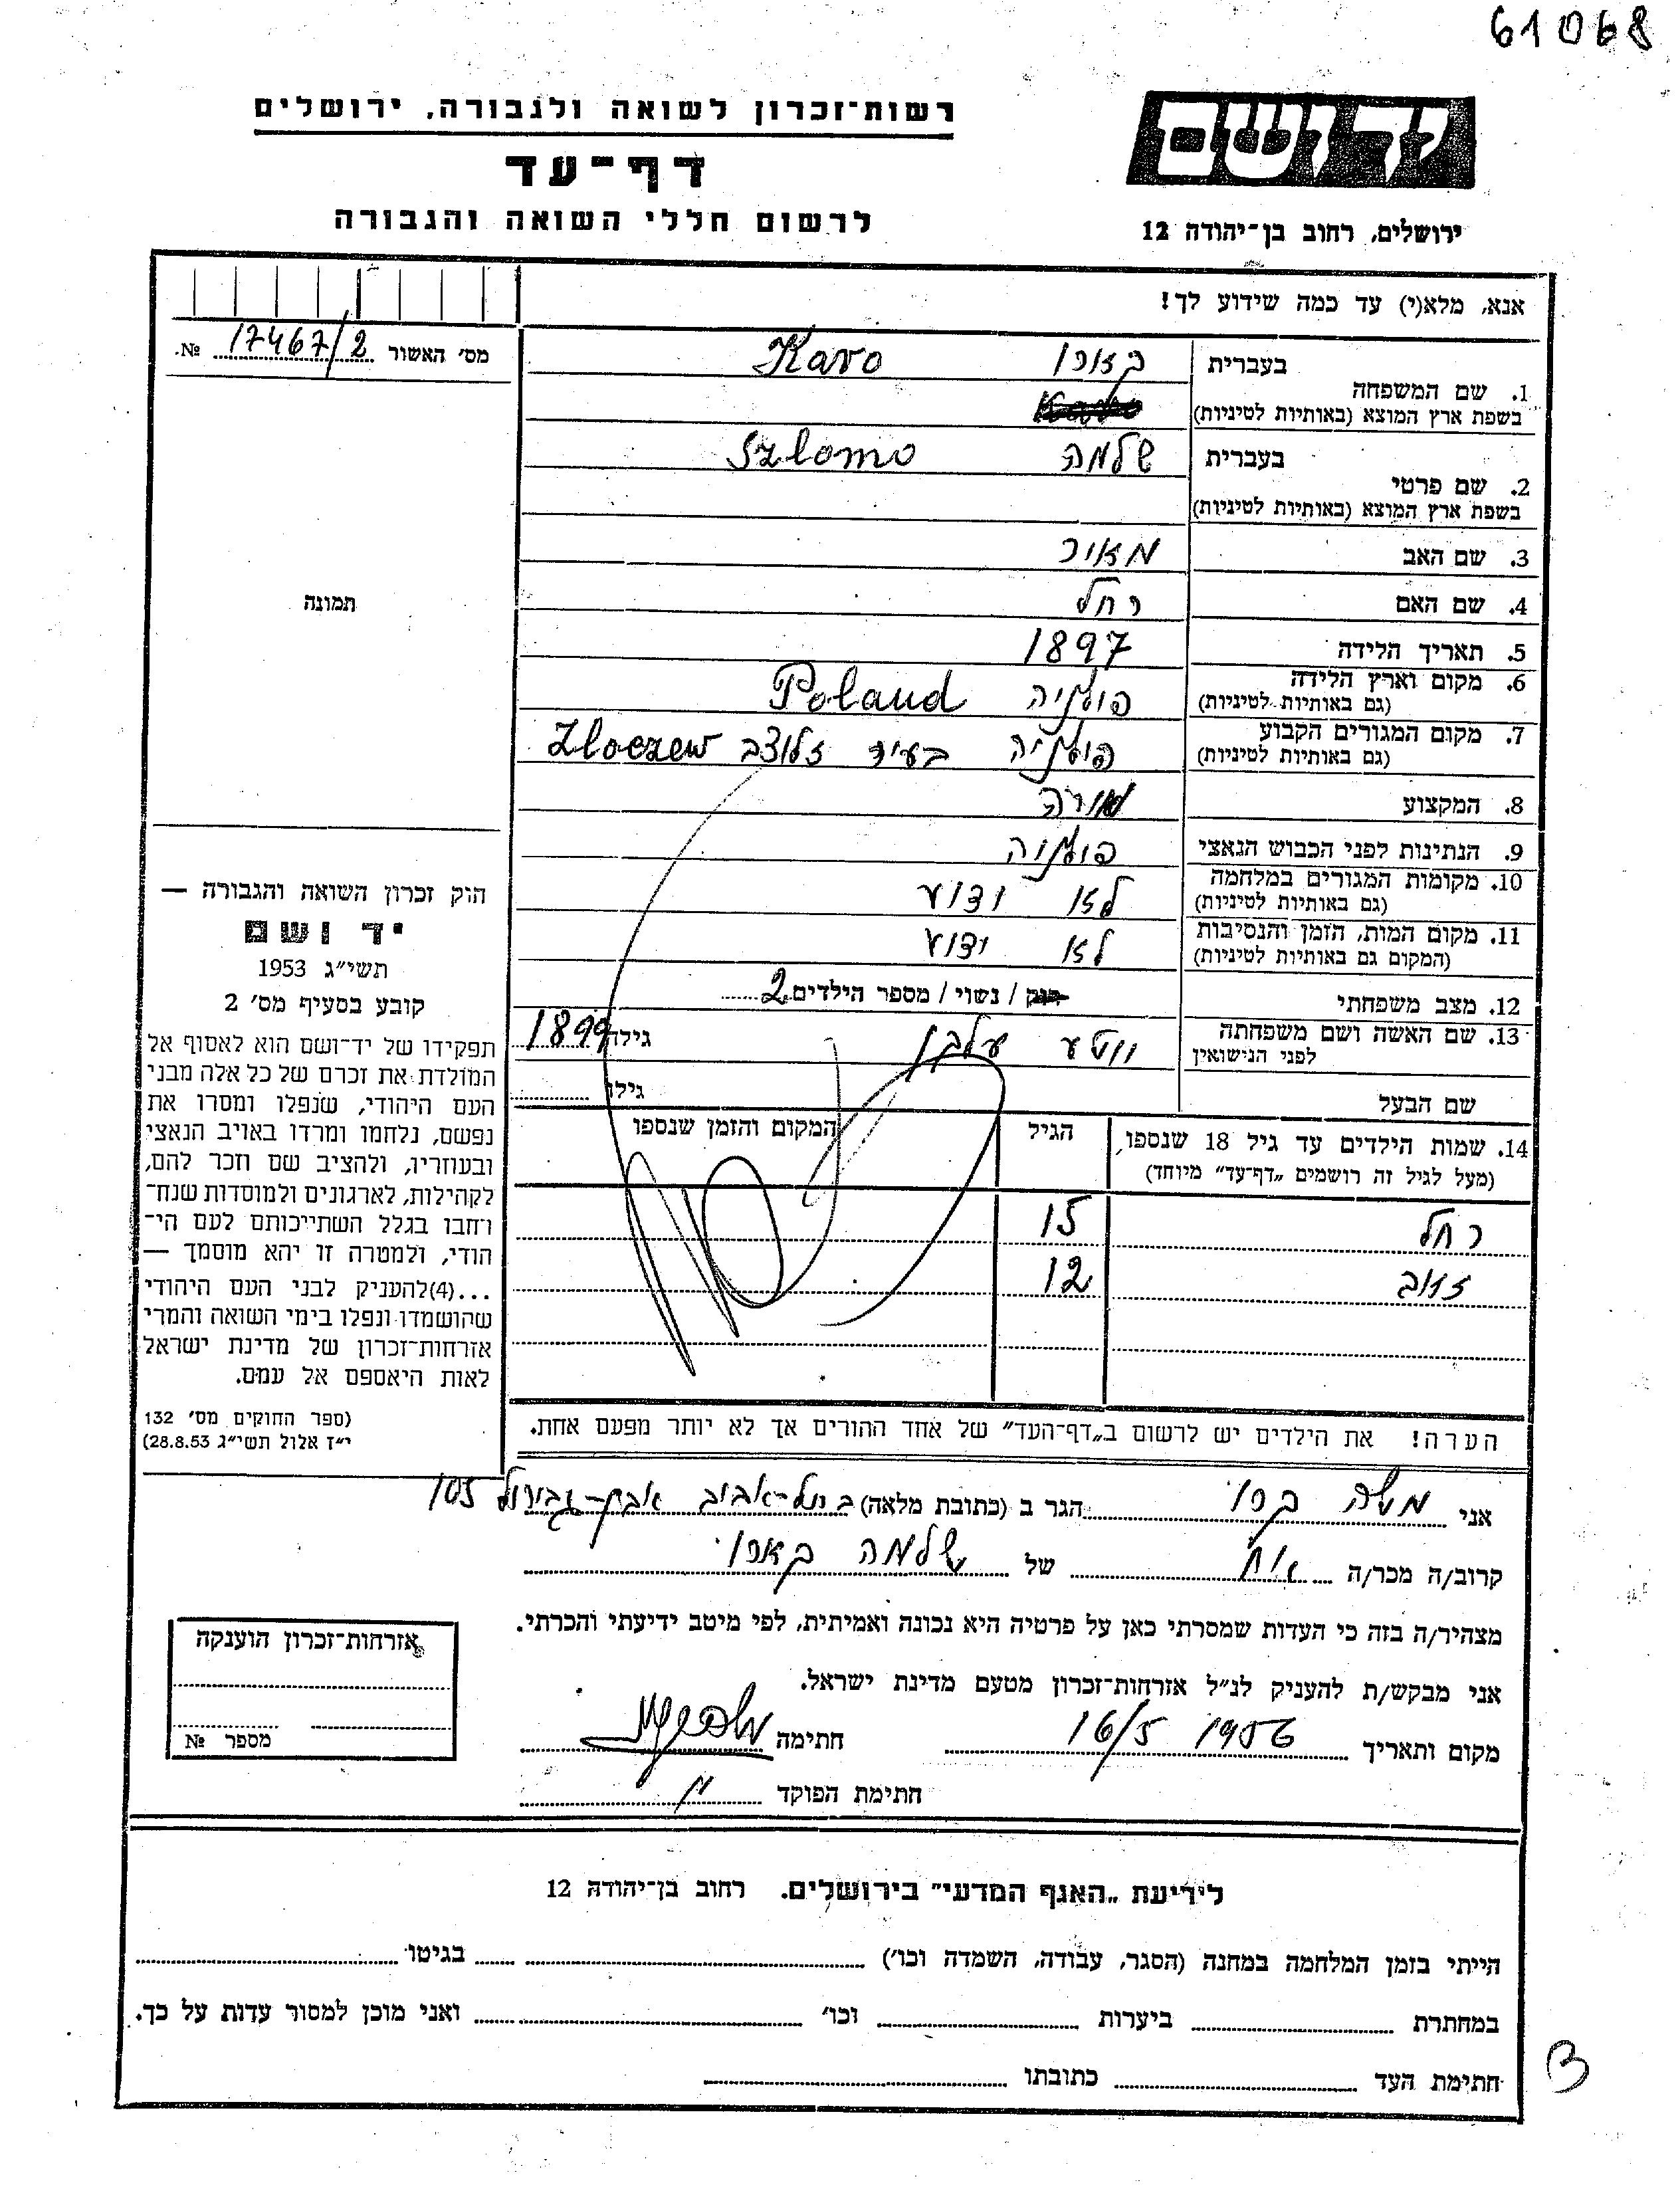 61068
רשות־זכרון לשואה ולגבורה, ירושלים
דף־עד
לרשום חללי השואה והגבורה
יד ושם
ירושלים, רחוב בן־יהודה 12
אנא, מלא(י) עד כמה שידוע לך!
מס׳ האשור 17467/2 №.
1. שם המשפחה בעברית קארו Karo
בשפת ארץ המוצא (באותיות לטיניות)
2. שם פרטי בעברית שלמה Szlomo
בשפת ארץ המוצא (באותיות לטיניות)
3. שם האב מאיר
4. שם האם רחל
5. תאריך הלידה 1897
6. מקום וארץ הלידה (גם באותיות לטיניות) פולניה Poland
7. מקום המגורים הקבוע (גם באותיות לטיניות) פולניה בעיר זלוצב Zloczew
8. המקצוע מורה
9. הנתינות לפני הכבוש הנאצי פולניה
10. מקומות המגורים במלחמה (גם באותיות לטיניות) לא ידוע
11. מקום המות, הזמן והנסיבות (המקום גם באותיות לטיניות) לא ידוע
12. מצב משפחתי רוק / נשוי / מספר הילדים 2
13. שם האשה ושם משפחתה לפני הנישואין גילה 1899
שם הבעל גילו
14. שמות הילדים עד גיל 18 שנספו, (מעל לגיל זה רושמים „דף־עד״ מיוחד) הגיל המקום והזמן שנספו
רחל 15
12
הערה! את הילדים יש לרשום ב„דף־העד״ של אחד ההורים אך לא יותר מפעם אחת.
תמונה
חוק זכרון השואה והגבורה —
יד ושם
תשי״ג 1953
קובע בסעיף מס׳ 2
תפקידו של יד־ושם הוא לאסוף אל
המולדת את זכרם של כל אלה מבני
העם היהודי, שנפלו ומסרו את
נפשם, נלחמו ומרדו באויב הנאצי
ובעוזריו, ולהציב שם וזכר להם,
לקהילות, לארגונים ולמוסדות שנח־
רחבו בגלל השתייכותם לעם הי־
הודי, ולמטרה זו יהא מוסמך —
...(4)להעניק לבני העם היהודי
שהושמדו ונפלו בימי השואה והמרי
אזרחות־זכרון של מדינת ישראל
לאות היאספם אל עמם.
(ספר החוקים מס׳ 132
י״ז אלול תשי״ג 28.8.53)
אני משה קרו הגר ב (כתובת מלאה) בתל־אביב אבן־גבירול 105
קרוב/ה מכר/ה אח של שלמה קארו
מצהיר/ה בזה כי העדות שמסרתי כאן על פרטיה היא נכונה ואמיתית, לפי מיטב ידיעתי והכרתי.
אני מבקש/ת להעניק לנ״ל אזרחות־זכרון מטעם מדינת ישראל.
מקום ותאריך 16/5 1956 חתימה
חתימת הפוקד
אזרחות־זכרון הוענקה
מספר №
לידיעת „האגף המדעי״ בירושלים. רחוב בן־יהודה 12
הייתי בזמן המלחמה במחנה (הסגר, עבודה, השמדה וכו׳) בגיטו
במחתרת ביערות וכו׳ ואני מוכן למסור עדות על כך.
חתימת העד כתובתו